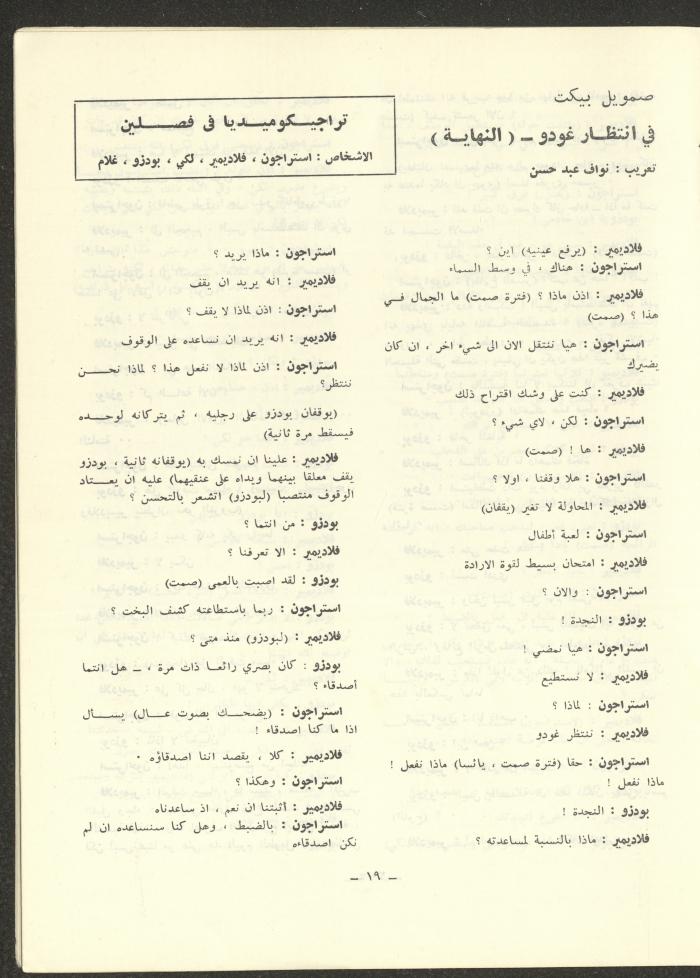 صمويل بيكت
في انتظار غودو ــ ( النهاية )
تعريب : نواف عبد حسن
تراجيكوميديا فى فصلين
الاشخاص : استراجون ، فلاديمير ، لكي ، بودزو ، غلام
فلاديمير : (يرفع عينيه) اين ؟
استراجون : هناك ، في وسط السماء
فلاديمير : اذن ماذا ؟ (فترة صمت) ما الجمال فى
هذا ؟ (صمت)
استراجون : هيا ننتقل الان الى شيء اخر ، ان كان
يضيرك
فلاديمير : كنت على وشك اقتراح ذلك
استراجون : لكن ، لاي شيء ؟
فلاديمير : ها ! (صمت)
استراجون : هلا وقفنا ، اولا ؟
فلاديمير : المحاولة لا تغير (يقفان)
استراجون : لعبة أطفال
فلاديمير : امتحان بسيط لقوة الارادة
استراجون : والان ؟
بودزو : النجدة !
استراجون : هيا نمضي !
فلاديمير : لا نستطيع
استراجون : لماذا ؟
فلاديمير : ننتظر غودو
استراجون : حقا (فترة صمت ، يائسا) ماذا نفعل !
ماذا نفعل !
بودزو : النجدة !
فلاديمير : ماذا بالنسبة لمساعدته ؟
استراجون : ماذا يريد ؟
فلاديمير : انه يريد ان يقف
استراجون : اذن لماذا لا يقف ؟
فلاديمير : انه يريد ان نساعده على الوقوف
استراجون : اذن لماذا لا نفعل هذا ؟ لماذا نحن
ننتظر؟
(يوقفان بودزو على رجليه ، ثم يتركانه لوحده
فيسقط مرة ثانية)
فلاديمير : علينا ان نمسك به (يوقفانه ثانية ، بودزو
يقف معلقا بينهما ويداه على عنقيهما) عليه ان يعتاد
الوقوف منتصبا (لبودزو) اتشعر بالتحسن ؟
بودزو : من انتما ؟
فلاديمير : الا تعرفنا ؟
بودزو : لقد اصبت بالعمى (صمت)
استراجون : ربما باستطاعته كشف البخت ؟
فلاديمير : (لبودزو) منذ متى ؟
بودزو : كان بصري رائعا ذات مرة ، ــ هل انتما
أصدقاء ؟
استراجون : (يضحك بصوت عال) يسأل
اذا ما كنا اصدقاء !
فلاديمير : كلا ، يقصد اننا اصدقاؤه ٠
استراجون : وهكذا ؟
فلاديمير : أثبتنا ان نعم ، اذ ساعدناه
استراجون : بالضبط ، وهل كنا سنساعده ان لم
نكن اصدقاءه
ــ ١٩ ــ